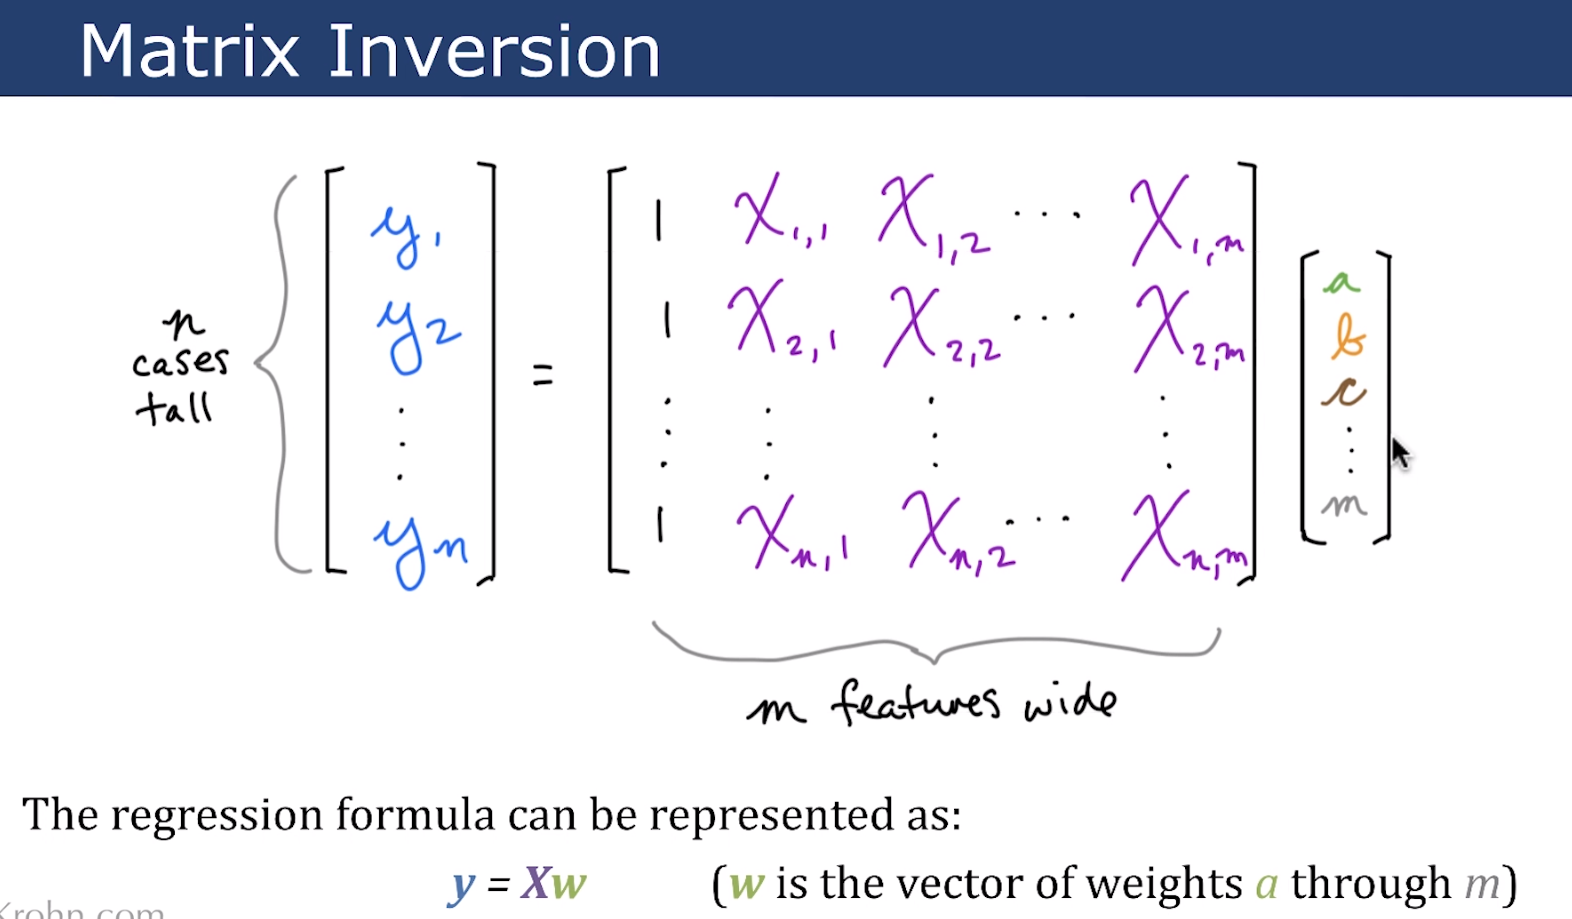 Matrix Inversion
n cases tall
[ y₁ ] = [ 1 X₁,₁ X₁,₂ ... X₁,m ] [ a ]
[ y₂ ] [ 1 X₂,₁ X₂,₂ ... X₂,m ] [ b ]
[ ⋮ ] [ ⋮ ⋮ ⋮ ⋮ ] [ c ]
[ yₙ ] [ 1 Xₙ,₁ Xₙ,₂ ... Xₙ,m ] [ ⋮ m ]
m features wide
The regression formula can be represented as:
y = Xw (w is the vector of weights a through m)